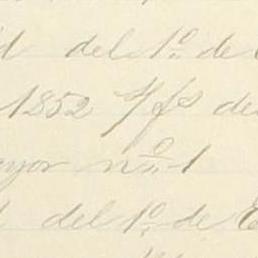 d del 1º de E
1852 f/s de
yor nº 1
d del 1º de E